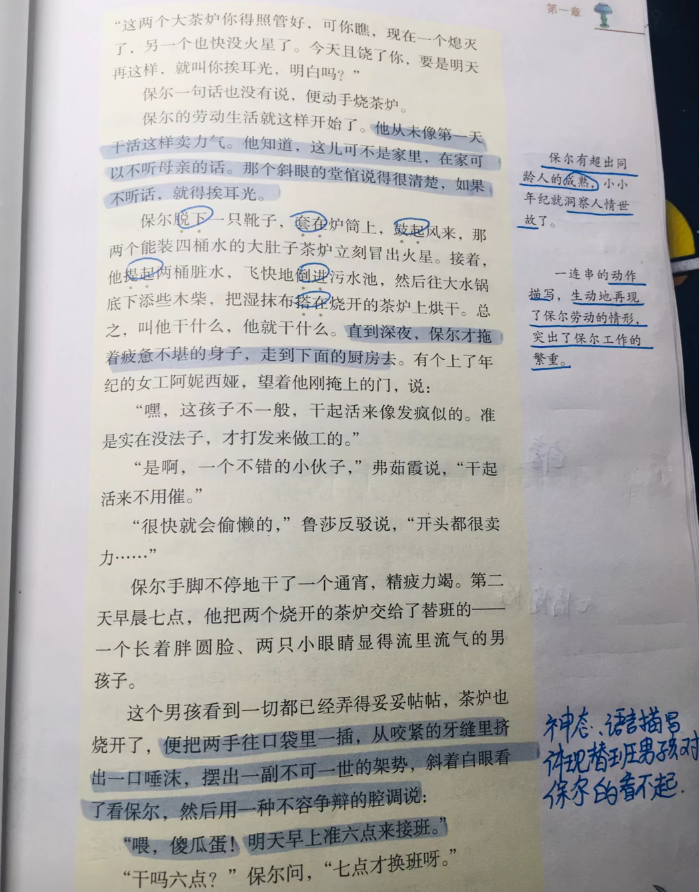 第一章
“这两个大茶炉你得照管好，可你瞧，现在一个熄灭
了，另一个也快没火星了。今天且饶了你，要是明天
再这样，就叫你挨耳光，明白吗？”
保尔一句话也没有说，便动手烧茶炉。
保尔的劳动生活就这样开始了。他从未像第一天
干活这样卖力气。他知道，这儿可不是家里，在家可
以不听母亲的话。那个斜眼的堂倌说得很清楚，如果
不听话，就得挨耳光。
保尔脱下一只靴子，套在炉筒上，鼓起风来，那
两个能装四桶水的大肚子茶炉立刻冒出火星。接着，
他提起两桶脏水，飞快地倒进污水池，然后往大水锅
底下添些木柴，把湿抹布搭在烧开的茶炉上烘干。总
之，叫他干什么，他就干什么。直到深夜，保尔才拖
着疲惫不堪的身子，走到下面的厨房去。有个上了年
纪的女工阿妮西娅，望着他刚掩上的门，说：
“嘿，这孩子不一般，干起活来像发疯似的。准
是实在没法子，才打发来做工的。”
“是啊，一个不错的小伙子，”弗茹霞说，“干起
活来不用催。”
“很快就会偷懒的，”鲁莎反驳说，“开头都很卖
力……”
保尔手脚不停地干了一个通宵，精疲力竭。第二
天早晨七点，他把两个烧开的茶炉交给了替班的——
一个长着胖圆脸、两只小眼睛显得流里流气的男
孩子。
这个男孩看到一切都已经弄得妥妥帖帖，茶炉也
烧开了，便把两手往口袋里一插，从咬紧的牙缝里挤
出一口唾沫，摆出一副不可一世的架势，斜着白眼看
了看保尔，然后用一种不容争辩的腔调说：
“喂，傻瓜蛋！明天早上准六点来接班。”
“干吗六点？”保尔问，“七点才换班呀。”
保尔有超出同
龄人的成熟，小小
年纪就洞察人情世
故了。
一连串的动作
描写，生动地再现
了保尔劳动的情形，
突出了保尔工作的
繁重。
神态、语言描写
体现替班男孩对
保尔的看不起.